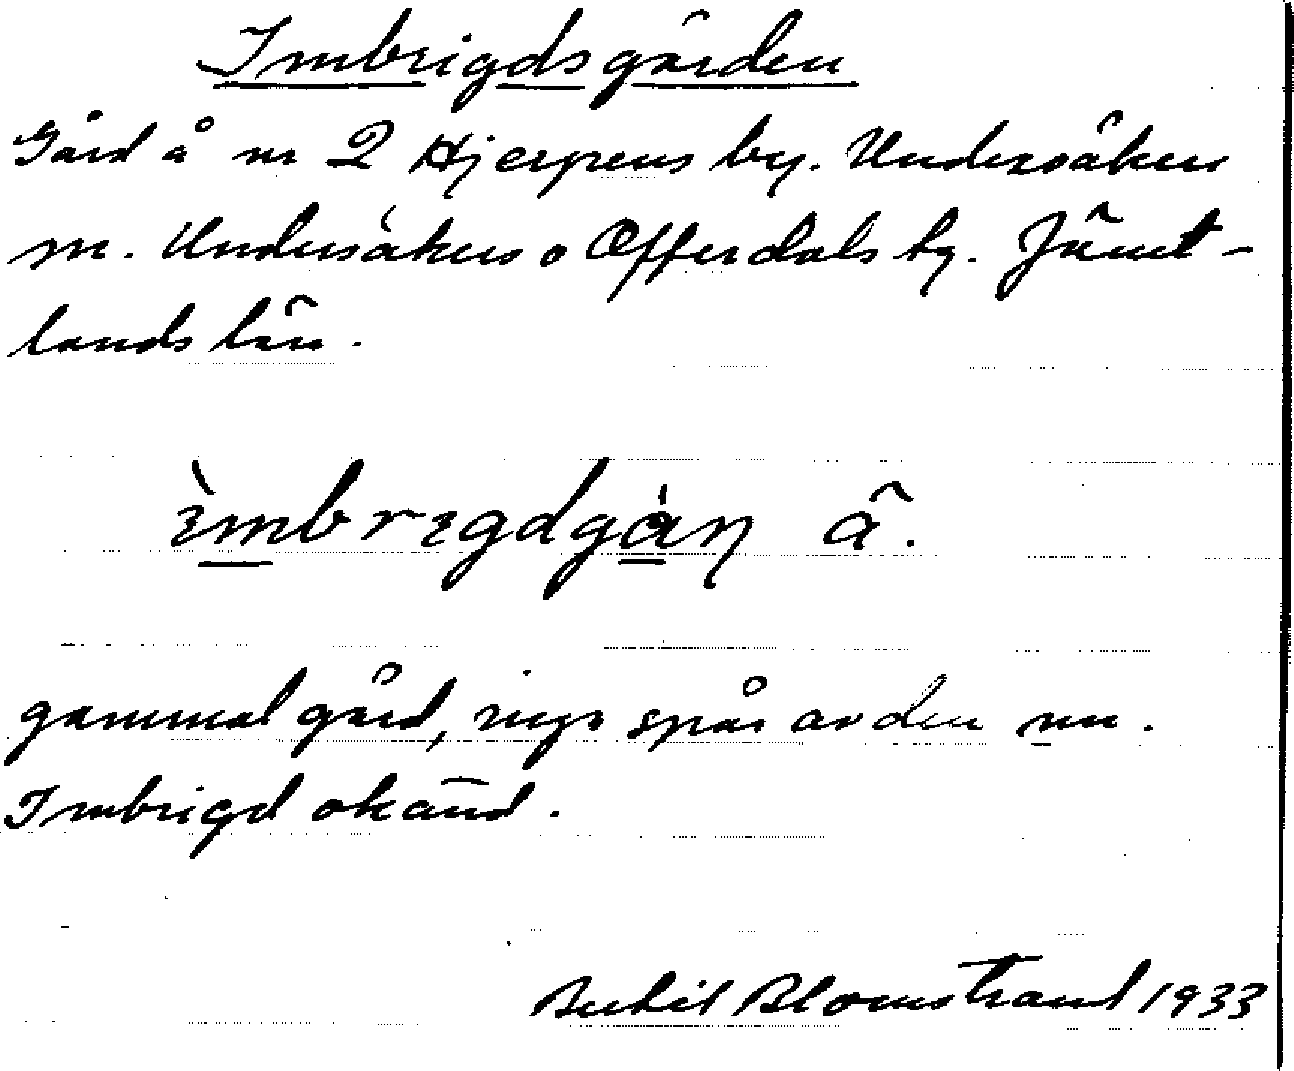 Imbrigdsgården
Gård å nr 2 Hjerpens by. Undersåkers
sn. Undersåkers o Offerdals tg. Jämt-
lands län.
ìmbrɪgdgàɳ â.
gammal gård, inga spår av den nu.
Imbrigd okänd.
Bertil Blomstrand 1933